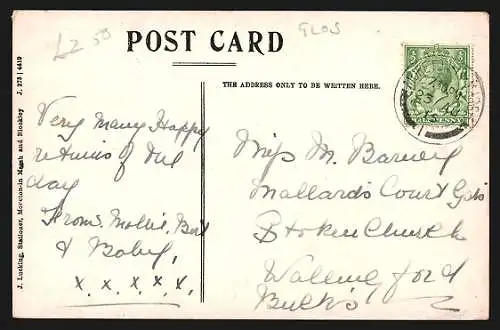 £2.50
GLOS
POST CARD
THE ADDRESS ONLY TO BE WRITTEN HERE.
Very Many Happy
returns of the
day
From Mollie, Bert
& Baby,
x. x. x. x. x.
Miss M. Barney
Mallards Court
Stokenchurch
Wallingford
Bucks
J. Lucking, Stationer, Moreton-in Marsh and Blockley J. 273 | 4419